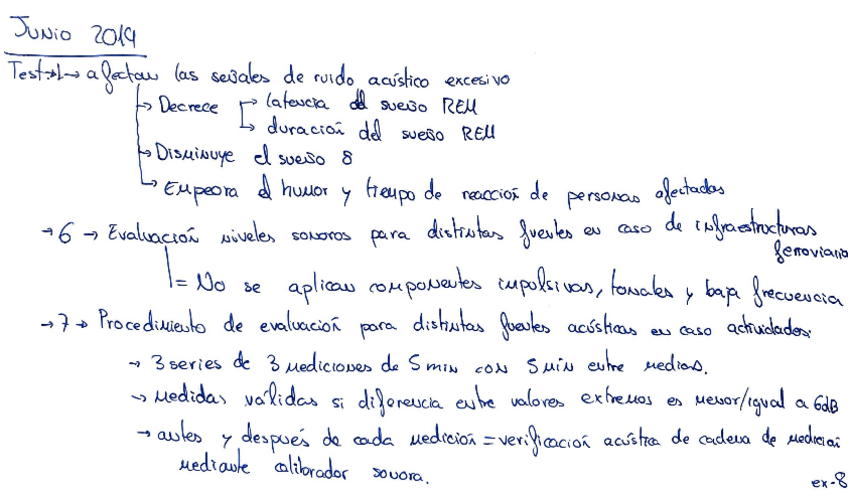 JUNIO 2019
Test→1→ afectan las señales de ruido acústico excesivo
↳ Decrece → latencia del sueño REM
↳ duración del sueño REM
↳ Disminuye el sueño δ
↳ Empeora el humor y tiempo de reacción de personas afectadas
→ 6 → Evaluación niveles sonoros para distintas fuentes en caso de infraestructuras
ferroviaria
= No se aplican componentes impulsivas, tonales y baja frecuencia
→ 7 → Procedimiento de evaluación para distintas fuentes acústicas en caso actividades:
→ 3 series de 3 mediciones de 5 min con 5 min entre medias.
→ Medidas válidas si diferencia entre valores extremos es menor/igual a 6dB
→ antes y después de cada medición = verificación acústica de cadena de medición
mediante calibrador sonora.
ex-8